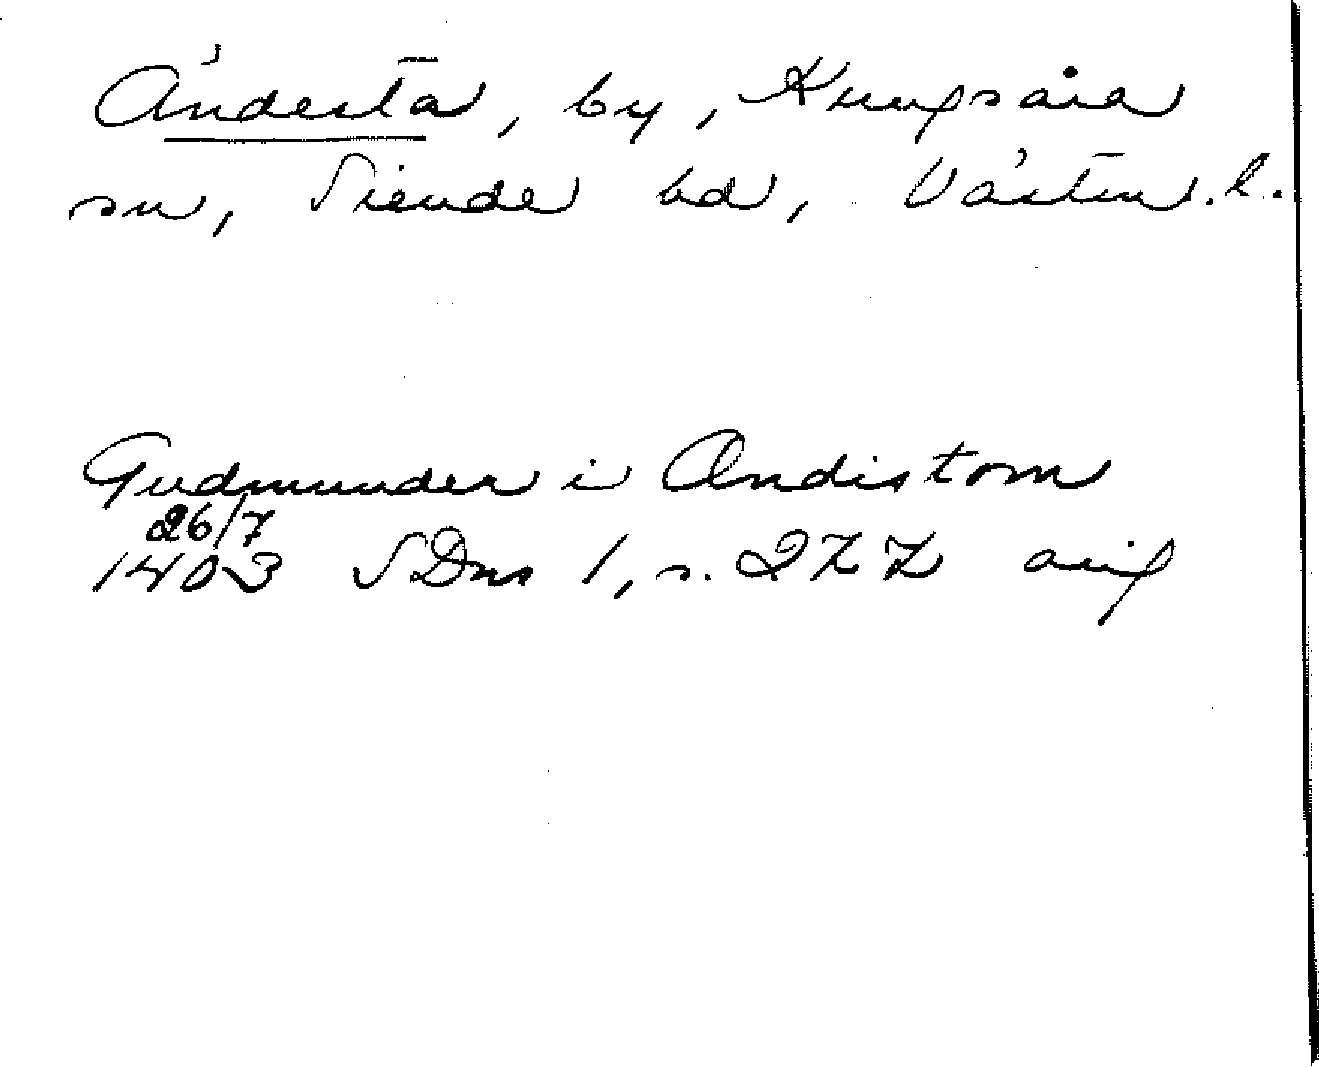 Ändesta, by, Kungsåra
sn, Siende hd, Västm.l.
Gudmunder i Andistom
26/7
1403 SDns 1, s. 277 avif